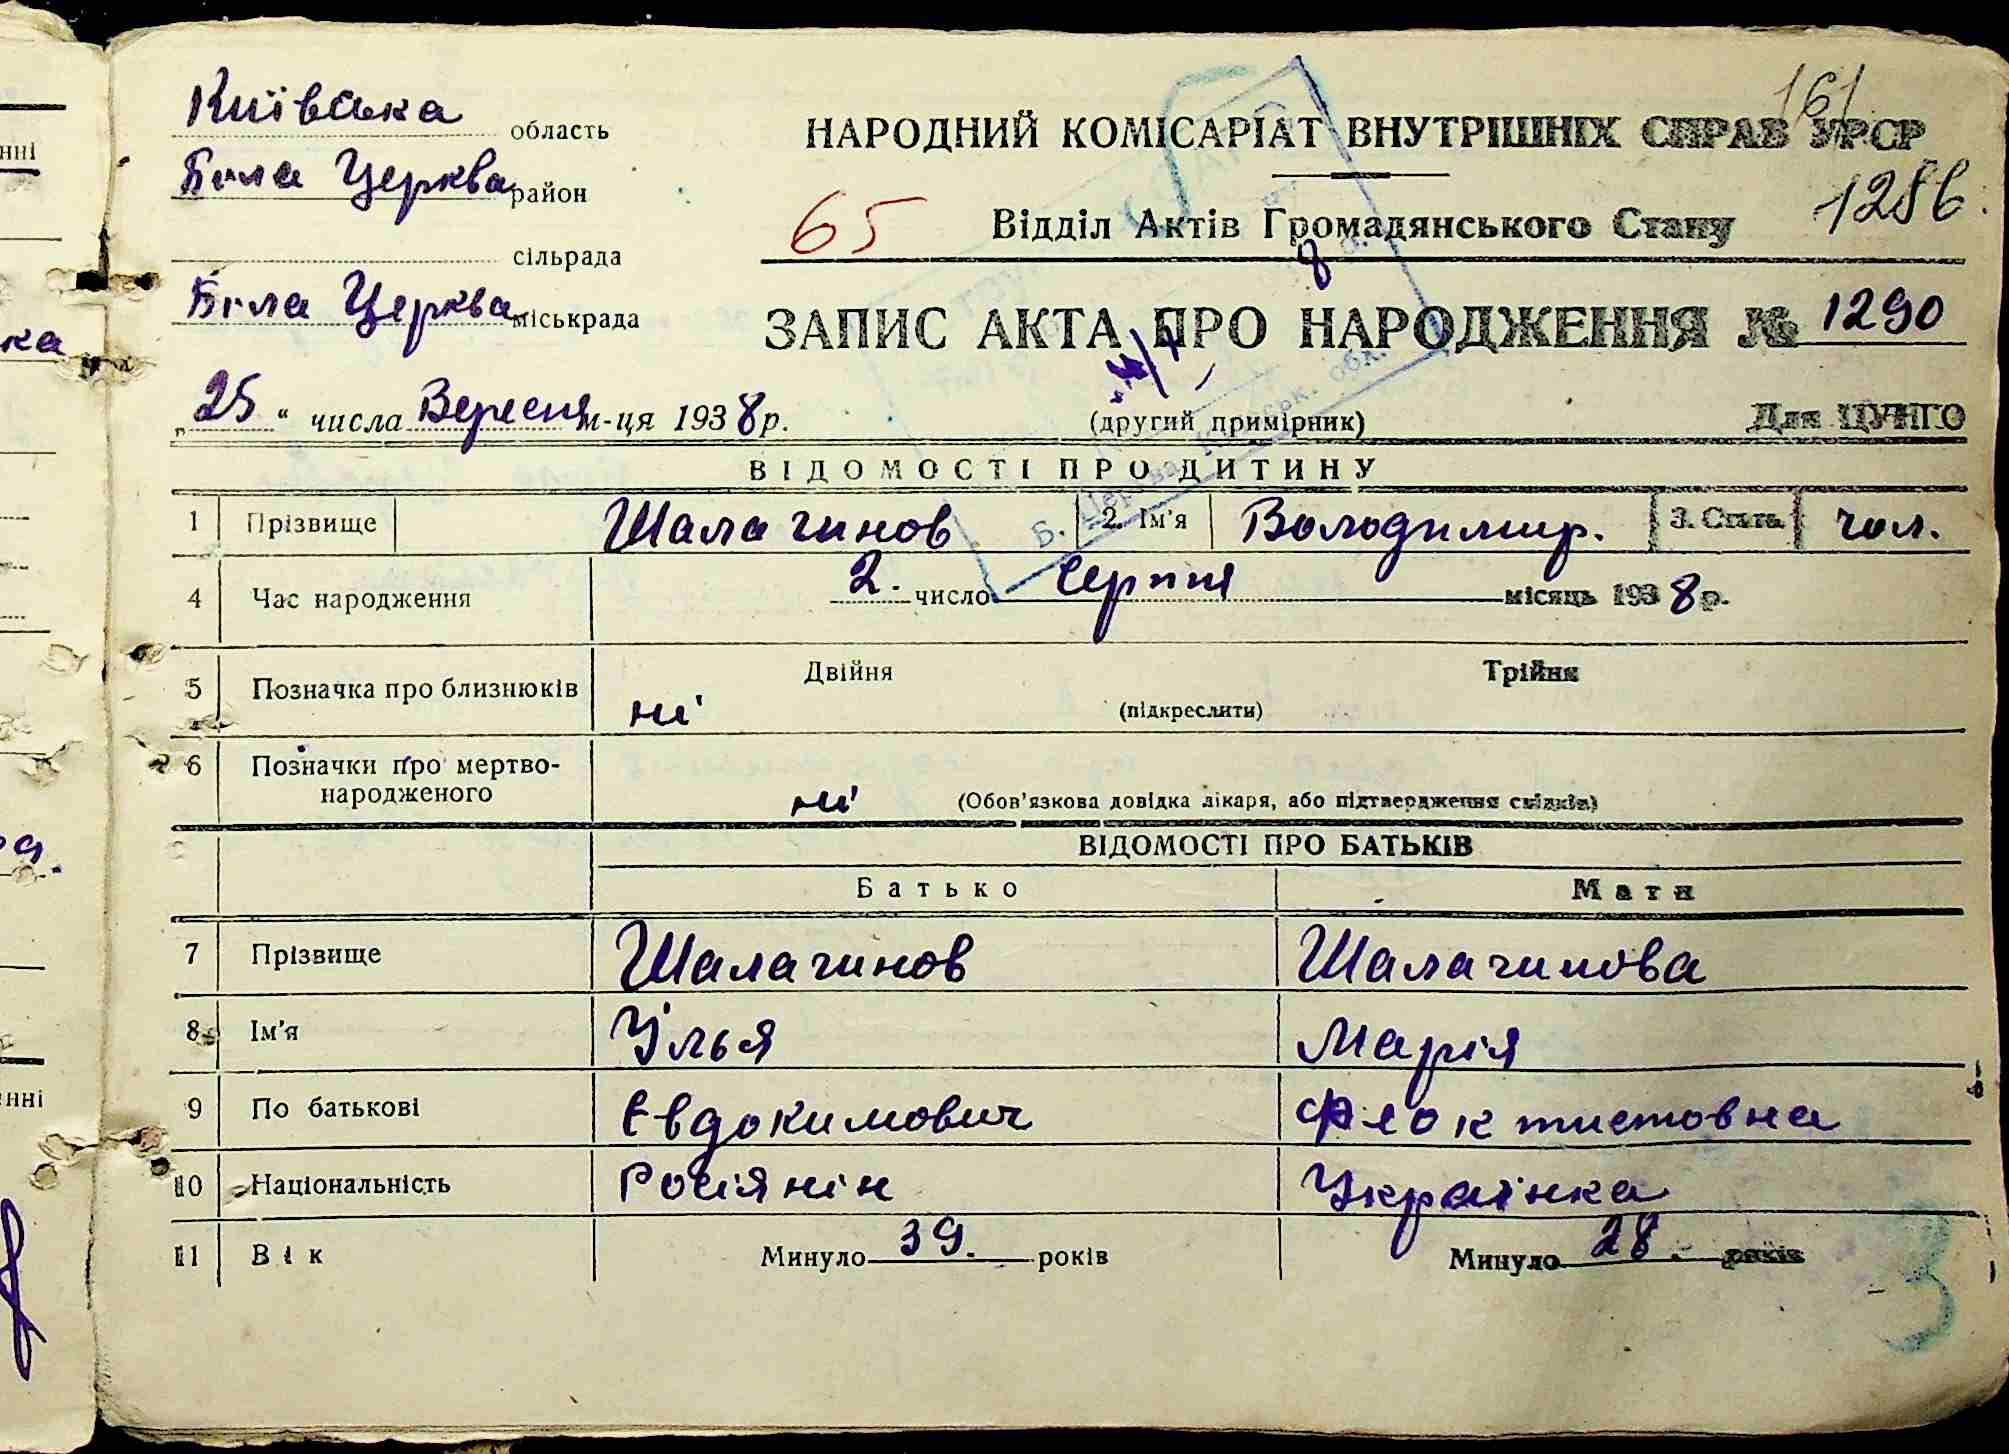 161
Київська область
НАРОДНИЙ КОМІСАРІАТ ВНУТРІШНІХ СПРАВ УРСР
Біла Церква район
65 Відділ Актів Громадянського Стану 1286
сільрада
8
Біла Церква міськрада
ЗАПИС АКТА ПРО НАРОДЖЕННЯ № 1290
„25“ числа Вересня м-ця 1938 р.
(другий примірник) Для ЦУНГО
ВІДОМОСТІ ПРО ДИТИНУ
1 Прізвище Шалагинов 2. Ім'я Володимир. 3. Стать чол.
4 Час народження 2. число Серпня місяць 1938 р.
5 Позначка про близнюків ні Двійня (підкреслити) Трійня
6 Позначки про мертво-
народженого ні (Обов'язкова довідка лікаря, або підтвердження свідків)
ВІДОМОСТІ ПРО БАТЬКІВ
Батько Мати
7 Прізвище Шалагинов Шалагинова
8 Ім'я Ілья Марія
9 По батькові Євдокимович Феоктистовна
10 Національність Росіянін Українка
11 Вік Минуло 39. років Минуло 28. років
3